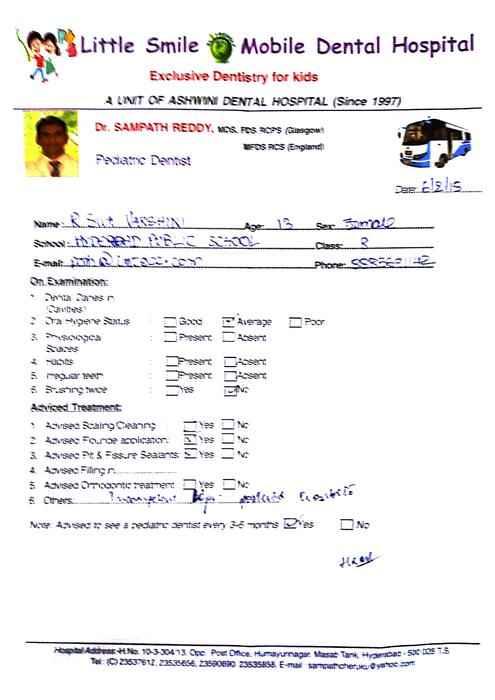 Little Smile Mobile Dental Hospital
Exclusive Dentistry for kids
A UNIT OF ASHWINI DENTAL HOSPITAL (Since 1997)
Dr. SAMPATH REDDY, MDS, FDS RCPS (Glasgow)
MFDS RCS (England)
Pediatric Dentist
Date:
Name: R. Age: 13 Sex: Female
School: HYDERABAD PUBLIC SCHOOL Class: 8
E-mail: Phone:
On Examination:
1. Dental Caries in
(Cavities)
2. Oral Hygiene Status : Good Average Poor
3. Physiological : Present Absent
Spaces
4. Habits : Present Absent
5. Irregular teeth : Present Absent
6. Brushing twice : Yes No
Adviced Treatment:
1. Advised Scaling Cleaning Yes No
2. Advised Flouride application: Yes No
3. Advised Pit & Fissure Sealants: Yes No
4. Advised Filling in
5. Advised Orthodontic treatment Yes No
6. Others.
Note: Advised to see a pediatric dentist every 3-6 months Yes No
Hospital Address -H.No. 10-3-304/13, Opp. Post Office, Humayunnagar, Masab Tank, Hyderabad - 500 028 T.S.
Tel: (C) 23537612, 23535656, 23590690, 23535858, E-mail :